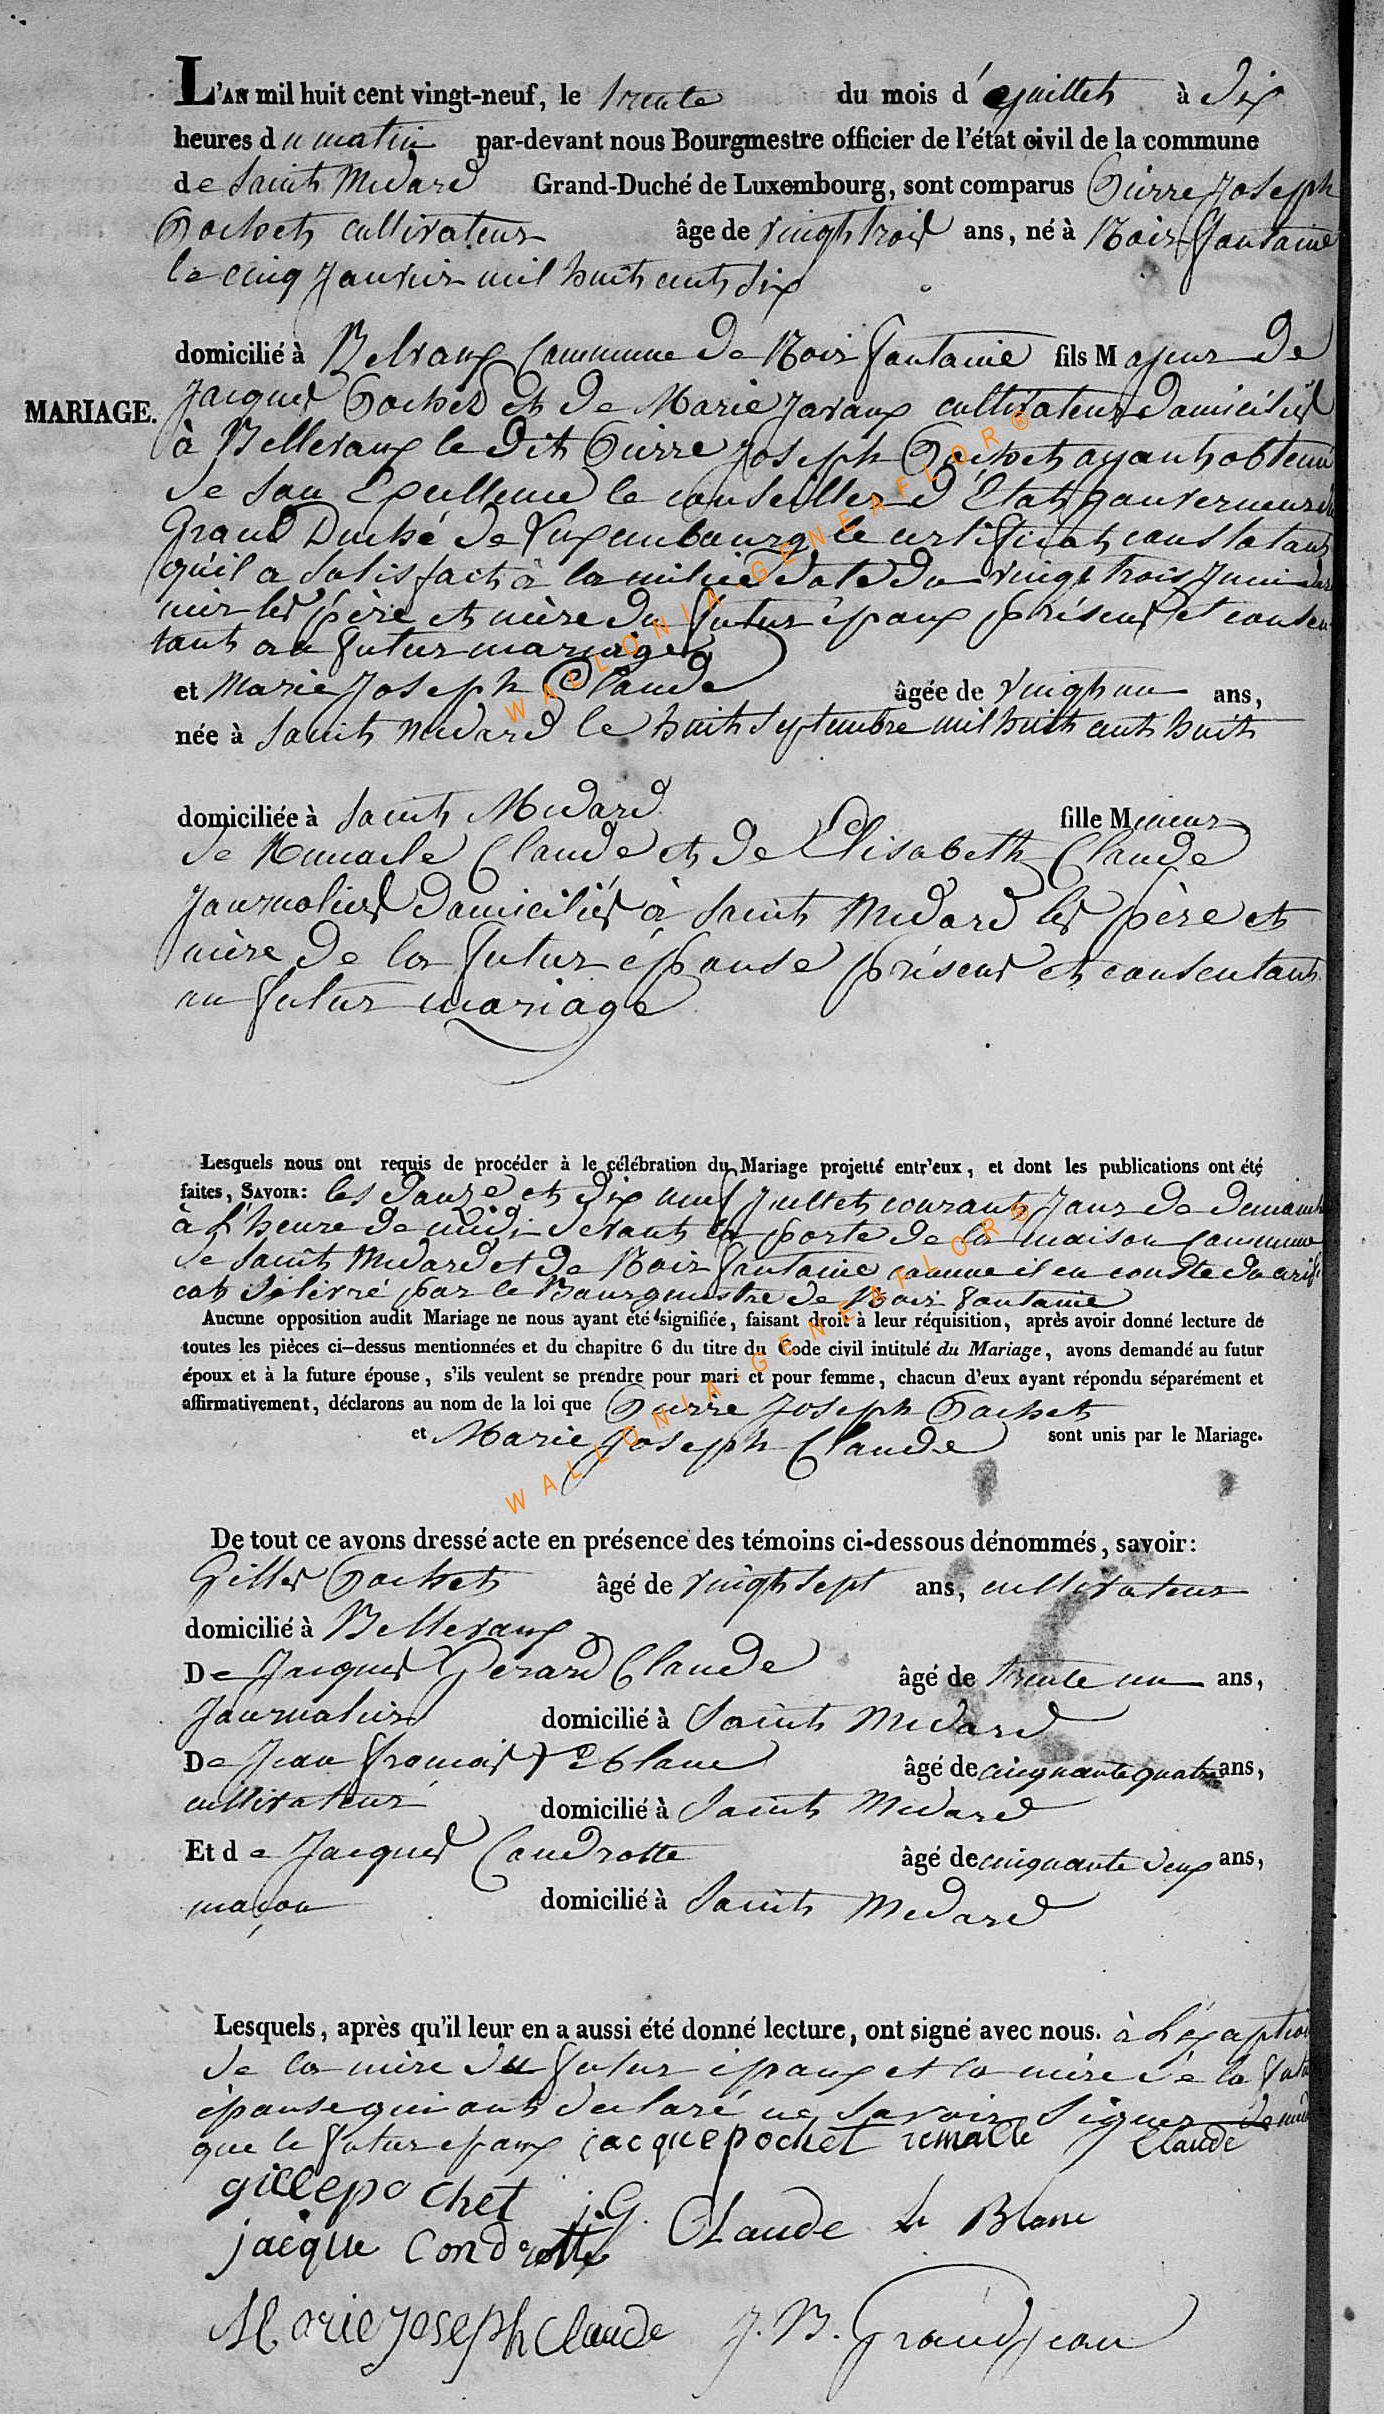 L'AN mil huit cent vingt-neuf, le trente du mois d' juillet à dix
heures du matin par-devant nous Bourgmestre officier de l'état civil de la commune
de Saint Medard Grand-Duché de Luxembourg, sont comparus Pierre Joseph
Pochet cultivateur âge de vingt trois ans, né à Noir fontaine
le cinq Janvier mil huit cent six
domicilié à Belvaux Commune de Noir fontaine fils Majeur de
MARIAGE.
Jacques Pochet et de Marie Javaux cultivateurs domiciliés
à Bellevaux le dit Pierre Joseph Pochet ayant obtenu
de son Excellence le conseiller d'Etat gouverneur du
Grand Duché de Luxembourg le certificat constatant
qu'il a satisfait à la milice daté du vingt trois Juin der
nier les père et mère du futur époux présens et consen
tant au futur mariage
et Marie Joseph Claude âgée de vingt un ans,
née à Saint Medard le huit Septembre mil huit cent huit
domiciliée à Saint Medard fille Mineur
de Remacle Claude et de Elisabeth Claude
Journaliers domiciliés à Saint Medard les père et
mère de la futur épouse présens et consentant
au futur mariage
Lesquels nous ont requis de procéder à le célébration du Mariage projetté entr'eux, et dont les publications ont été
faites, SAVOIR: les douze et dix neuf Juillet courant Jour de dimanche
à l'heure de midi devant la porte de la maison Commune
de Saint Medard et de Noir fontaine comme il en conste du certifi
cat délivré par le Bourgmestre de Noir fontaine
Aucune opposition audit Mariage ne nous ayant été signifiée, faisant droit à leur réquisition, après avoir donné lecture de
toutes les pièces ci-dessus mentionnées et du chapitre 6 du titre du Code civil intitulé du Mariage, avons demandé au futur
époux et à la future épouse, s'ils veulent se prendre pour mari et pour femme, chacun d'eux ayant répondu séparément et
affirmativement, déclarons au nom de la loi que Pierre Joseph Pochet
et Marie Joseph Claude sont unis par le Mariage.
De tout ce avons dressé acte en présence des témoins ci-dessous dénommés, savoir:
Gilles Pochet âgé de vingt sept ans, cultivateur
domicilié à Bellevaux
De Jacques Gerard Claude âgé de trente un ans,
Journalier domicilié à Saint Medard
De Jean françois Leblanc âgé de cinquante quatre ans,
cultivateur domicilié à Saint Medard
Et de Jacques Condrotte âgé de cinquante deux ans,
maçon domicilié à Saint Medard
Lesquels, après qu'il leur en a aussi été donné lecture, ont signé avec nous. à l'exeption
de la mère du futur epoux et la mère de la futur
épouse qui ont declaré ne savoir Signer
que le futur epoux jacque pochet remacle Claude
gille pochet j. G. Claude le Blanc
jacque Condrotte
Marie joseph Claude J. B. Grandjean
WALLONIA-GENEAFLOR®
WALLONIA-GENEAFLOR®